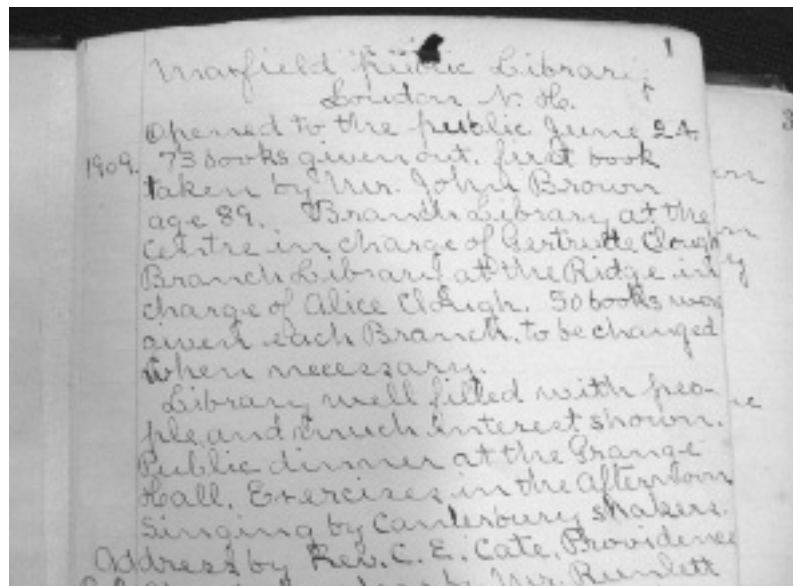 1
Maxfield Public Library
Loudon N. H.
Opened to the public June 24.
1909. 73 books given out. first book
taken by Mr. John Brown
age 89. Branch Library at the
Centre in charge of Gertrude Clough
Branch Library at the Ridge in
charge of Alice Clough. 50 books were
given each Branch. to be changed
when necessary.
Library well filled with peo-
ple and much interest shown.
Public dinner at the Grange
Hall. Exercises in the afternoon
Singing by Canterbury Shakers.
Address by Rev. C. E. Cate, Providence
by Mr. Rundlett
3